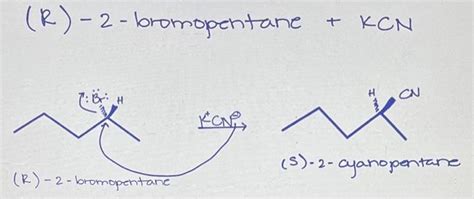 (R)-2-bromopentane + KCN
:Br: H
K⁺CN⊖
H CN
(S)-2-cyanopentane
(R)-2-bromopentane